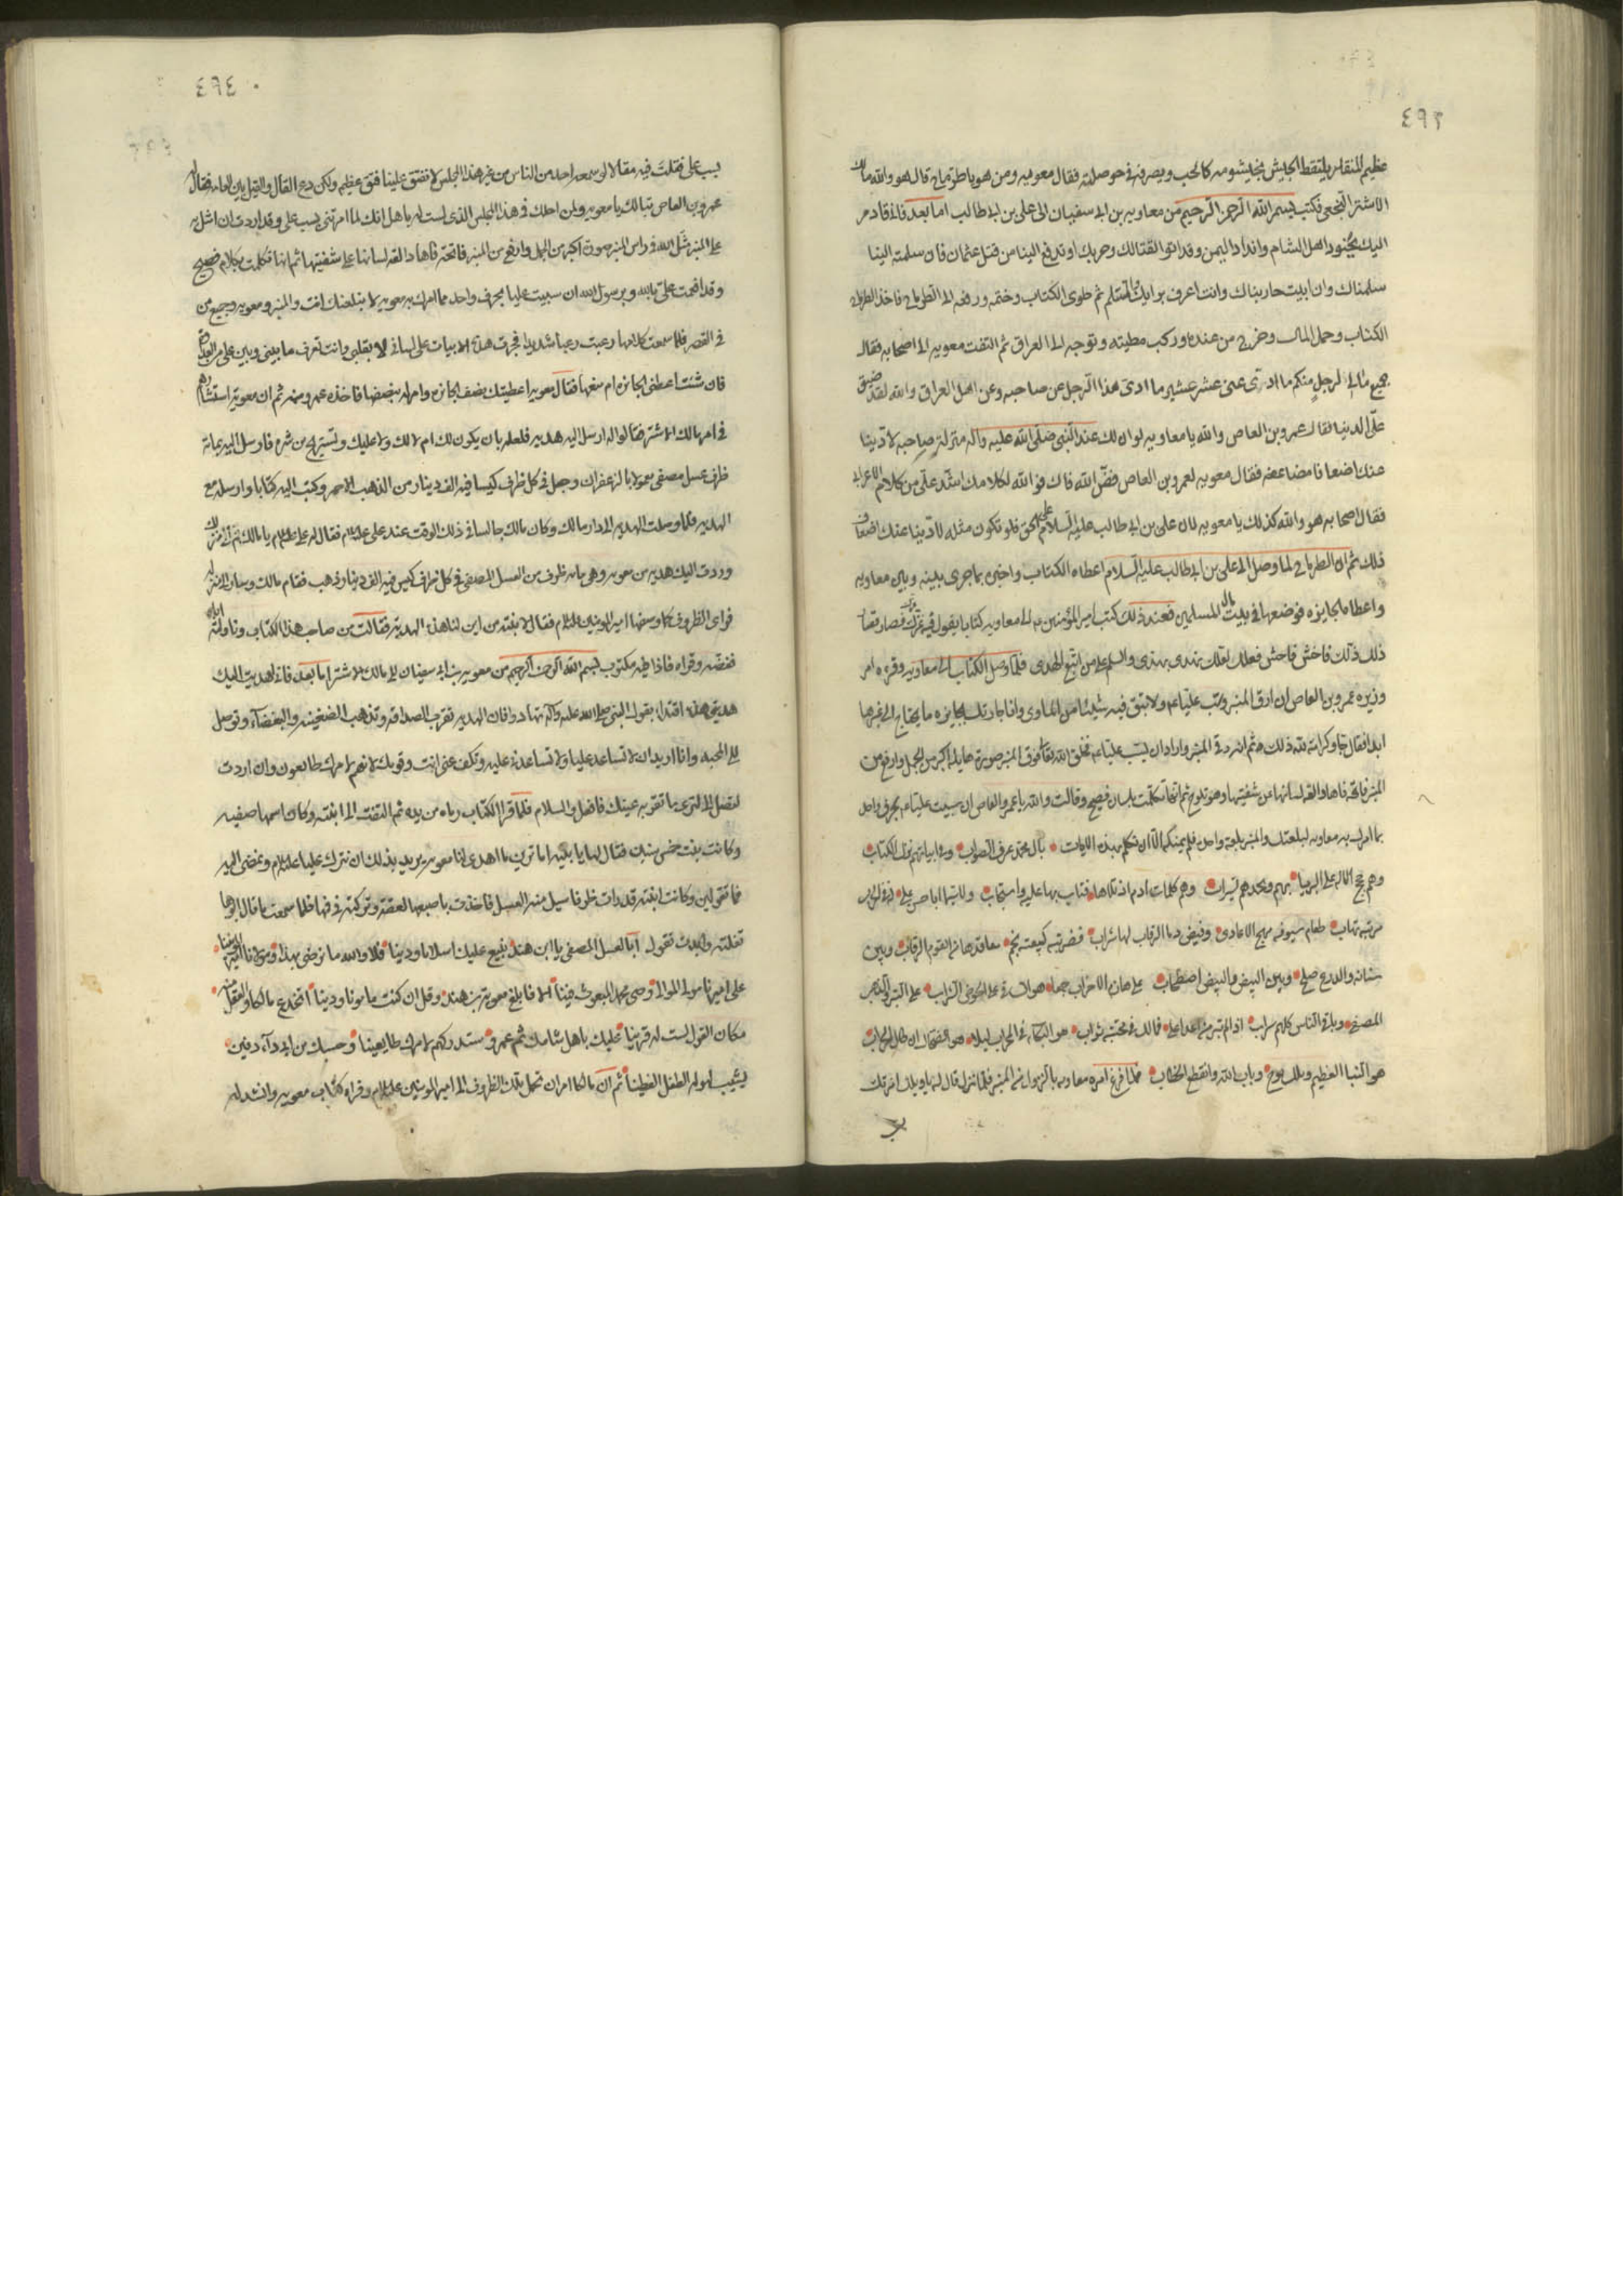 ٤٩٣
عظيم المنقار يلتقط الجيش بخيشومه كالحب ويصرفه في حوصلته فقال معويه ومن هو يا طرماح قال هو والله مالك
الاشتر النخعى فكتب بسم الله الرحمن الرحيم من معاويه بن ابى سفيان الى على بن ابى طالب اما بعد فانى قادم
اليك بجنود اهل الشام وانداد اليمن وقد اتوا لقتالك وحربك او تدفع الينا من قتل عثمان فان سلمته الينا
سلمناك وان ابيت حاربناك وانت اعرف برايك ثم طوى الكتاب وختمه ودفعه الى الطرماح فاخذ الطرماح
الكتاب وحمل المال وخرج من عنده وركب مطيته وتوجه الى العراق ثم التفت معويه الى اصحابه فقال
جميع مالى لرجل منكم ما ادى عنى عشر عشير ما ادى هذا الرجل عن صاحبه وعن اهل العراق والله لقد ضيق
على الدنيا فقال عمرو بن العاص والله يا معاويه لو ان لك عند النبى صلى الله عليه وآله منزلة صاحبه لادينا
عنك اضعافا مضاعفه فقال معويه لعمرو بن العاص فض الله فاك فو الله لكلامك اشد على من كلام الاعرابى
فقال اصحابه هو والله كذلك يا معويه لان على بن ابى طالب عليه السلام على الحق فلو تكون مثله لادينا عنك اضعاف
ذلك ثم ان الطرماح لما وصل الى على بن ابى طالب عليه السلام اعطاه الكتاب واخبره بما جرى بينه وبين معاويه
واعطاه الجايزه فوضعها فى بيت مال المسلمين فعند ذلك كتب امير المؤمنين الى معاويه كتابا يقول فيه غرك عزك فصار قصار
ذلك ذلك فاخش فاحش فعلك لعلك تهدى بهدى والسلم على من اتبع الهدى فلما وصل الكتاب الى معاويه وقرءه امر
وزيره عمرو بن العاص ان ارق المنبر وسب عليا ولا تبق فيه شيئا من المساوى وانا اجازتك بجايزه ما يحتاج الى غيرها
ابدا فقال حبا وكرامة لله ذلك ثم انه رقى المنبر واراد ان يسب عليا فخلق الله تعالى فوق المنبر صورة هايله اكبر من الجمل وارفع من
المنبر فاتحه فاها والقه لسانها عن شفتيها وهو تلوح ثم انها تكلمت بلسان فصيح وقالت والله يا عمرو العاص ان سببت عليا بحرف واحد
مما امرك به معاويه لبلعتك والمنبر بلعة واحده فلم يمكنه الا ان تكلم بهذه الابيات بآل محمد عرف الصواب وفى ابياتهم نزل الكتاب
وهم حجج الاله على البرايا بهم وبجدهم لا يستراب وهم كلمات ادم اذ تلاها فتاب بها عليه واستجاب ولا سيما ابا حسن على له فى الحرب
مرتبه تهاب طعام سيوفه مهج الاعادى وفيض دما الرقاب لها شراب فضربته كبيعته بخم معاقدها من القوم الرقاب وبين
سنانه والدرع صلح وبين البيض والبيض اصطحاب على هام الاحزاب جمعا هوان في على الحوض التراب على التبر والذهب
المصفى وباقى الناس كلهم سراب اذا لم تبر من اعدا على فمالك فى محبته ثواب هو البكاء فى المحراب ليلا هو الضحاك ان طال الحراب
هو النبا العظيم وفلك نوح وباب الله وانقطع الخطاب فلما فرغ امره معاويه بالنزول من المنبر فلما نزل قال له يا ويلك امرتك

٤٩٤
يسب على فقلت فيه مقالا لو سمعه احد من الناس من غير هذا المجلس لانفتق علينا فتق عظيم ولكن دع القال والقيل بين العامه فقال
عمرو بن العاص تبا لك يا معويه ولمن احلك فى هذا المجلس الذى لست له باهل انك لما امرتنى بسب على وقد اردت ان اشل به
على المنبر مثل الله فى راس المنبر صورة اكبر من الجمل وارفع من المنبر فاتحه فاها دالقه لسانها على شفتيها ثم انها تكلمت بكلام فصيح
وقد اقسمت على بالله وبرسول الله ان سببت عليا بحرف واحد مما امرك به معويه لابتلعنك انت والمنبر ومعويه وجميع من
فى القصر فلما سمعت كلامها رعبت رعبا شديدا فجرت هذه الابيات على لسانى لا بقلبى وانت تعرف ما بينى وبين على من العداوة
فان شئت اعطنى الجايزه ام منعها فقال معويه اعطيتك نصف الجايزه وامر له بنصفها فاخذه عمرو ومنه ثم ان معويه استشاره
فى امر مالك الاشتر فقالوا له ارسل اليه هديه فلعله بان يكون لك ام لا لك ولا عليك وتستريح من شره فارسل اليه بمائة
ظرف عسل مصفى معمولا بالزعفران وجعل فى كل ظرف كيسا فيه الف دينار من الذهب الاحمر وكتب اليه كتابا وارسله مع
الهديه فلما وصلت الهديه الى دار مالك وكان مالك جالسا فى ذلك الوقت عند على عليه السلام فقال له على عليه السلام يا مالك قم الى منزلك
وردت اليك هديه من معويه وهى مائه ظرف من العسل المصفى فى كل ظرف كيس فيه الف دينار ذهب فقام مالك وسار الى منزله
فراى الظروف كما وصفها امير المومنين عليه السلام فقال لابنته من اين لنا هذه الهديه فقالت من صاحب هذا الكتاب وناولته اياه
ففضه وقراه فاذا فيه مكتوب بسم الله الرحمن الرحيم من معويه بن ابى سفيان الى مالك الاشتر اما بعد فانى اهديت اليك
هديتى هذه اقتداء بقول النبى صلى الله عليه وآله تهادوا فان الهديه تقرب الصداقه وتذهب الضغينه والبغضاء وتوصل
الى المحبه وانا اريد ان لا تساعد عليا ولا تساعدنى عليه وتكف عنى انت وقومك لانهم لامرك طايعون وان اردت
لتصل الى لترى ما تقر به عينك فافعل والسلام فلما قرا الكتاب رماه من يده ثم التفت الى ابنته وكان اسمها صفيه
وكانت بنت خمس سنين فقال لها يا بنيه اما ترين ما اهدى لنا معويه يريد بذلك ان نترك عليا عليه السلام ونمضى اليه
فما تقولين وكانت ابنته قد رات ظرفا سيل منه العسل فاخذت باصبعها لعقته وتركته فى فمها فلما سمعت ما قال ابوها
تفلته وانشات تقول ابالعسل المصفى يا ابن هند نبيع عليك اسلاما ودينا فلا والله ما نرضى بهذا ومولانا امير المومنينا
على اميرنا مولى الموالى وصى محمد المبعوث فينا الا فابلغ معوية بن هند وقل ان كنت مامونا ودينا اتخدع مالكا والعقل منه
مكان القول لست له قرينا عليك باهل شامك ثم عمرو ستدركهم لامرك طايعينا وحسبك من ابى داء دفين
يشيب لهوله الطفل الفطينا ثم ان مالكا امر ان تحمل تلك الظروف الى امير المومنين عليه السلام وقراه كتاب معويه وانشد له